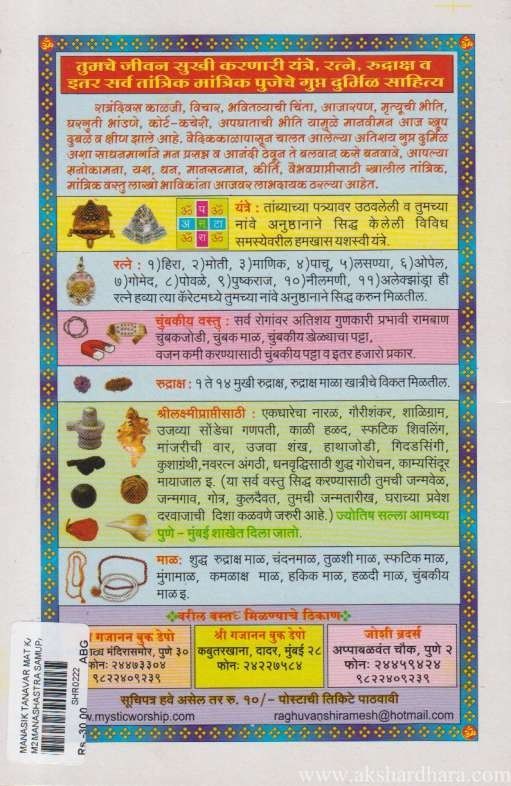 तुमचे जीवन सुखी करणारी यंत्रे, रत्ने, रुद्राक्ष व
इतर सर्व तांत्रिक मांत्रिक पुजेचे गुप्त दुर्मिळ साहित्य
रात्रंदिवस काळजी, विचार, भवितव्याची चिंता, आजारपण, मृत्यूची भीति,
घरगुती भांडणे, कोर्ट-कचेरी, अपघाताची भीति यामुळे मानवीमन आज खूप
दुबळे व क्षीण झाले आहे. वैदिककाळापासून चालत आलेल्या अतिशय गुप्त दुर्मिळ
अशा साधनमार्गाने मन प्रसन्न व आनंदी ठेवून ते बलवान कसे बनवावे, आपल्या
मनोकामना, यश, धन, मानसन्मान, कीर्ति, वैभवप्राप्तीसाठी खालील तांत्रिक,
मांत्रिक वस्तु लाखो भाविकांना आजवर लाभदायक ठरल्या आहेत.
यंत्रे : तांब्याच्या पत्र्यावर उठवलेली व तुमच्या
नांवे अनुष्ठानाने सिद्ध केलेली विविध
समस्येवरील हमखास यशस्वी यंत्रे.
रत्ने : १)हिरा, २)मोती, ३)माणिक, ४)पाचू, ५)लसण्या, ६)ओपेल,
७)गोमेद, ८)पोवळे, ९)पुष्कराज, १०)नीलमणी, ११)अलेक्झांड्रा ही
रत्ने हव्या त्या कॅरेटमध्ये तुमच्या नांवे अनुष्ठानाने सिद्ध करुन मिळतील.
चुंबकीय वस्तु : सर्व रोगांवर अतिशय गुणकारी प्रभावी रामबाण
चुंबकजोडी, चुंबक माळ, चुंबकीय डोळ्याचा पट्टा,
वजन कमी करण्यासाठी चुंबकीय पट्टा व इतर हजारो प्रकार.
रुद्राक्ष : १ ते १४ मुखी रुद्राक्ष, रुद्राक्ष माळा खात्रीचे विकत मिळतील.
श्रीलक्ष्मीप्राप्तीसाठी : एकधारेचा नारळ, गौरीशंकर, शाळिग्राम,
उजव्या सोंडेचा गणपती, काळी हळद, स्फटिक शिवलिंग,
मांजरीची वार, उजवा शंख, हाथाजोडी, गिदडसिंगी,
कुशाग्रंथी,नवरत्न अंगठी, धनवृद्धिसाठी शुद्ध गोरोचन, काम्यसिंदूर
मायाजाल इ. (या सर्व वस्तु सिद्ध करण्यासाठी तुमची जन्मवेळ,
जन्मगाव, गोत्र, कुलदैवत, तुमची जन्मतारीख, घराच्या प्रवेश
दरवाजाची दिशा कळवणे जरुरी आहे.) ज्योतिष सल्ला आमच्या
पुणे - मुंबई शाखेत दिला जातो.
माळ: शुद्ध रुद्राक्ष माळ, चंदनमाळ, तुळशी माळ, स्फटिक माळ,
मुंगामाळ, कमळाक्ष माळ, हकिक माळ, हळदी माळ, चुंबकीय
माळ इ.
वरील वस्तू मिळण्याचे ठिकाण
श्री गजानन बुक डेपो
मंदिरासमोर, पुणे ३०
फोन: २४४७३३०४
९८२२४०९२३९
श्री गजानन बुक डेपो
कबुतरखाना, दादर, मुंबई २८
फोन: २४२२७५८४
जोशी ब्रदर्स
अप्पाबळवंत चौक, पुणे २
फोन: २४४५९४२४
९८२२४०९२३९
सूचिपत्र हवे असेल तर रु. १०/- पोस्टाची तिकिटे पाठवावी
www.mysticworship.com
raghuvanshiramesh@hotmail.com
MANASIK TANAVAR MAT K
M2 MANASHASTRA SAMUP
SHR0222
Rs. 30.00 ABG
www.akshardhara.com